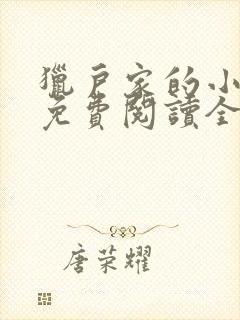 獵戶家的小
免費閱讀全
唐荣耀